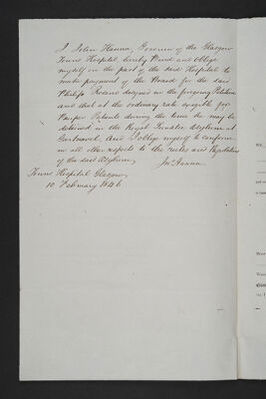 I John Hanna, Governor of the Glasgow
Town's Hospital hereby Bind and oblige
myself on the part of the said Hospital to
make payment of the Board for the said
Philip designed in the foregoing Petition
and that at the ordinary rate sought for
Pauper Patients during the time he may be
detained in the Royal Lunatic Asylum at
Gartnavel, and I oblige myself to conform
in all other respects to the rules and Regulations
of the said Asylum,
Jn. Hanna
Towns Hospital Glasgow
10 February 1846